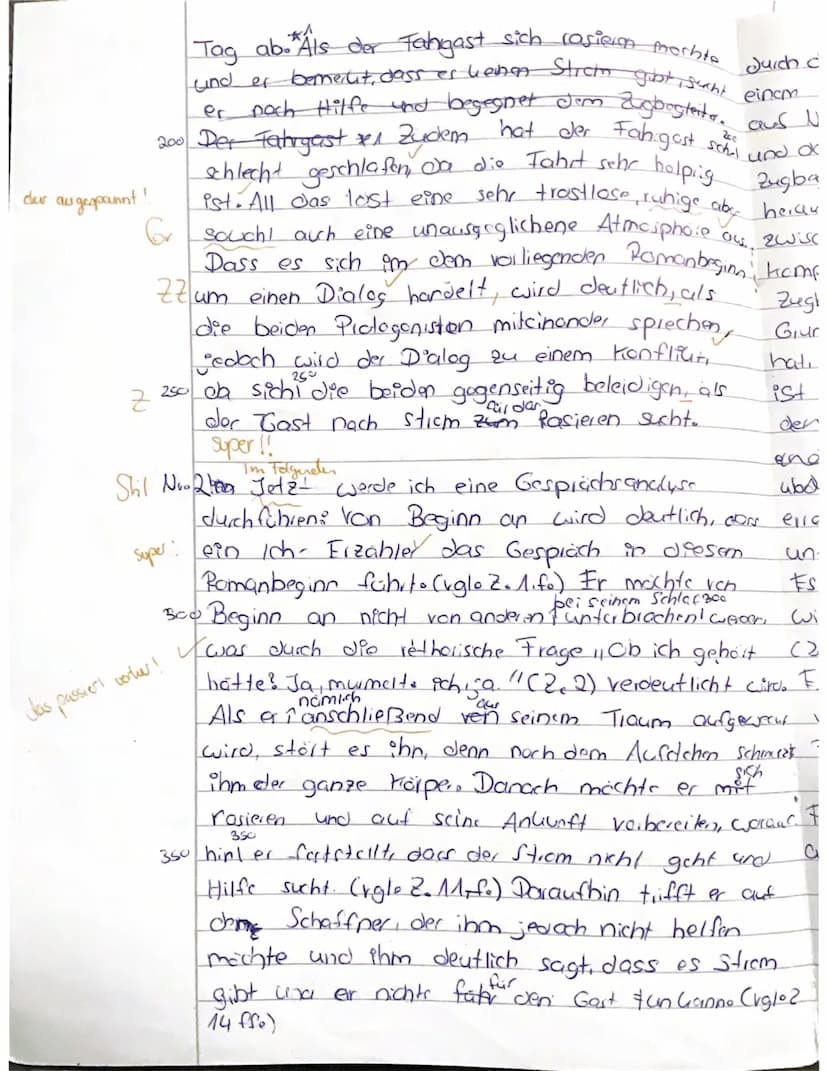 Tag ab. *1 Als der Fahrgast sich rasieren mochte
und er bemerkt, dass er keinen Strom gibt, sucht
er nach Hilfe und begegnet dem Zugbegleiter.
200 Der Fahrgast *1 Zudem hat der Fahrgast sehr
schlecht geschlafen, da die Fahrt sehr holprig
der angespannt! ist. All das löst eine sehr trostlose, ruhige aber
Gr sowohl auch eine unausgeglichene Atmosphäre aus.
Dass es sich im dem vorliegenden Romanbeginn
ZZ um einen Dialog handelt, wird deutlich, als
die beiden Protagonisten miteinander sprechen,
jedoch wird der Dialog zu einem Konflikt,
250
Z 250 ob sich die beiden gegenseitig beleidigen, als
der Gast nach Strom zum für das Rasieren sucht.
super!!
Im Folgenden
Stil Nr. 2 Jetzt werde ich eine Gesprächsanalyse
durchführen: Von Beginn an wird deutlich, dass
super: ein Ich-Erzähler das Gespräch in diesem
Romanbeginn führt. (vgl. Z. 1.f.) Er möchte von
bei seinem Schlaf 300
300 Beginn an nicht von anderen unterbrochen werden,
was durch die rethorische Frage „Ob ich gehört
das passiert vorher! hätte? Ja, murmelte ich, ja." (Z. 2) verdeutlicht wird.
nämlich aus
Als er anschließend von seinem Traum aufgeweckt
wird, stört es ihn, denn nach dem Aufstehen schmerzt
ihm der ganze Körper. Danach möchte er mit sich
rasieren und auf seine Ankunft vorbereiten, worauf
350
350 hin er feststellt, dass der Strom nicht geht und
Hilfe sucht. (vgl. Z. 11, f.) Daraufhin trifft er auf
Schaffner, der ihm jedoch nicht helfen
möchte und ihm deutlich sagt, dass es Strom
gibt und er nichts für den Gast tun kann. (vgl. Z
14 ff.)
durch
einem
aus
und
Zugba
herau
zwisc
komp
Zugl
hat,
ist
der
und
un
Es
wi
(Z